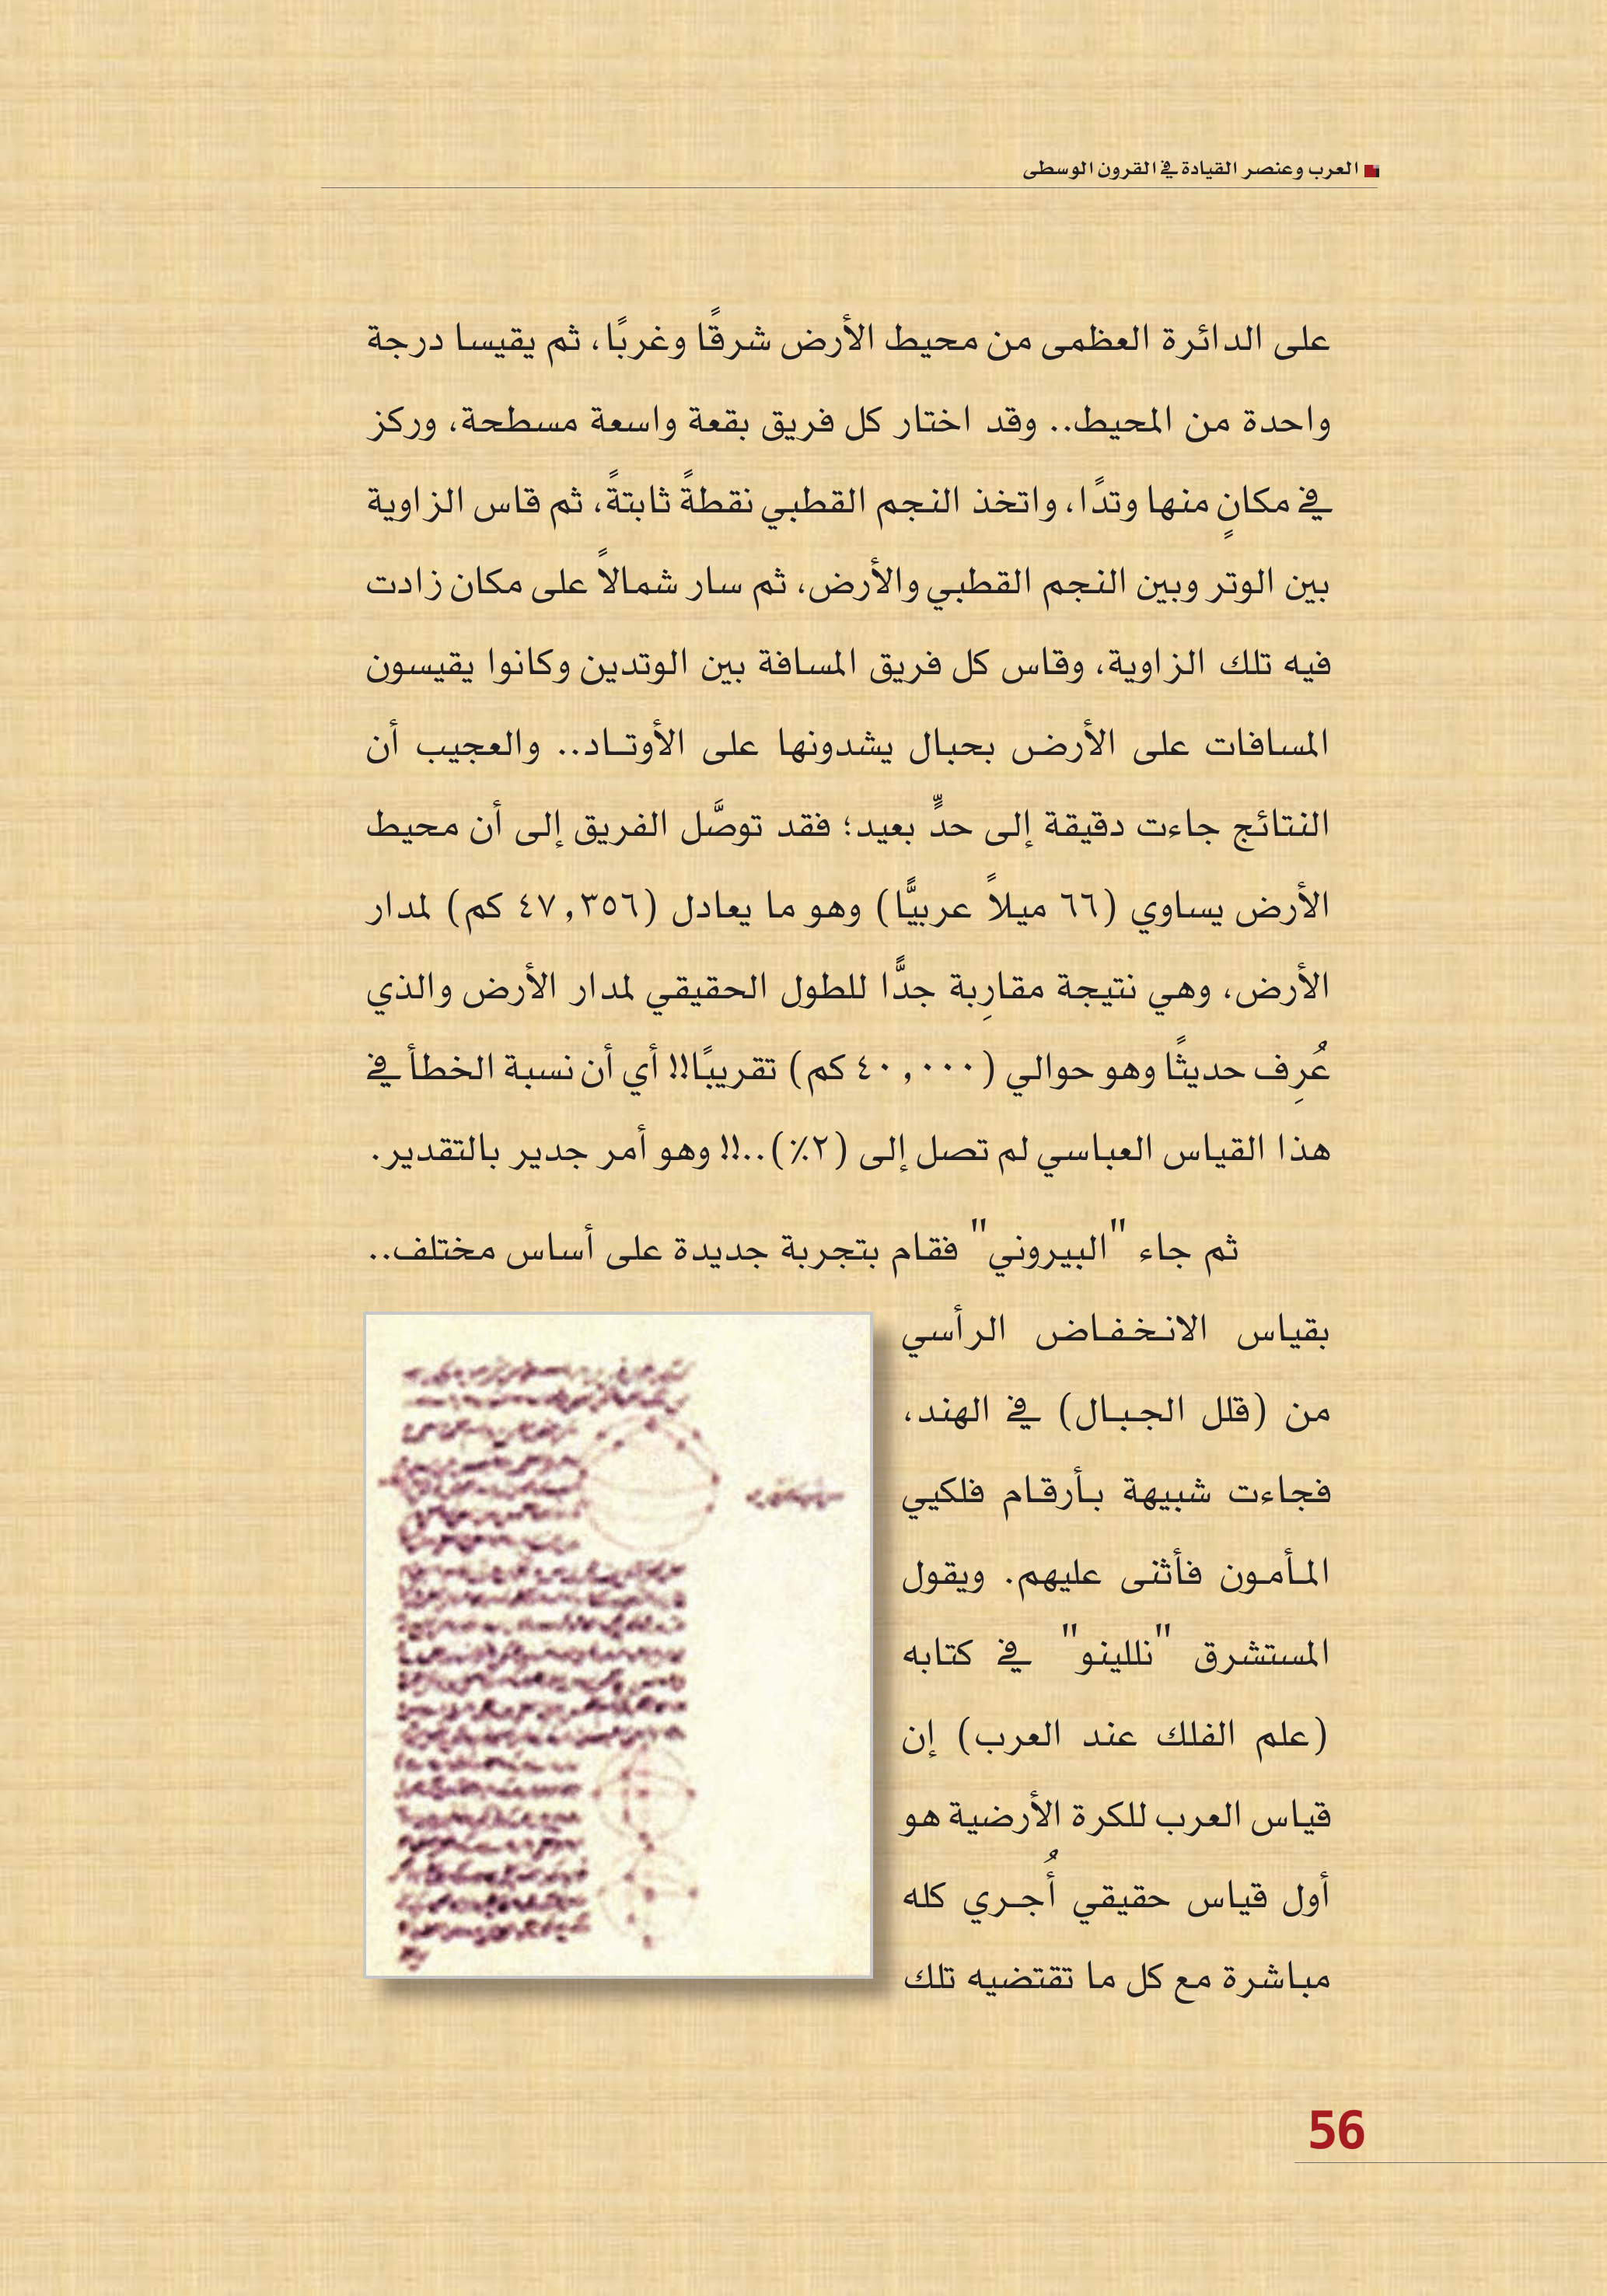 العرب وعنصر القيادة في القرون الوسطى
على الدائرة العظمى من محيط الأرض شرقًا وغربًا، ثم يقيسا درجة
واحدة من المحيط.. وقد اختار كل فريق بقعة واسعة مسطحة، وركز
في مكانٍ منها وتدًا، واتخذ النجم القطبي نقطةً ثابتةً، ثم قاس الزاوية
بين الوتر وبين النجم القطبي والأرض، ثم سار شمالاً على مكان زادت
فيه تلك الزاوية، وقاس كل فريق المسافة بين الوتدين وكانوا يقيسون
المسافات على الأرض بحبال يشدونها على الأوتاد.. والعجيب أن
النتائج جاءت دقيقة إلى حدٍّ بعيد؛ فقد توصَّل الفريق إلى أن محيط
الأرض يساوي (٦٦ ميلاً عربيًّا) وهو ما يعادل (٤٧,٣٥٦ كم) لمدار
الأرض، وهي نتيجة مقارِبة جدًّا للطول الحقيقي لمدار الأرض والذي
عُرِف حديثًا وهو حوالي (٤٠,٠٠٠ كم) تقريبًا!! أي أن نسبة الخطأ في
هذا القياس العباسي لم تصل إلى (٢٪)..!! وهو أمر جدير بالتقدير.
ثم جاء "البيروني" فقام بتجربة جديدة على أساس مختلف..
بقياس الانخفاض الرأسي
من (قلل الجبال) في الهند،
فجاءت شبيهة بأرقام فلكيي
المأمون فأثنى عليهم. ويقول
المستشرق "نللينو" في كتابه
(علم الفلك عند العرب) إن
قياس العرب للكرة الأرضية هو
أول قياس حقيقي أُجري كله
مباشرة مع كل ما تقتضيه تلك
56